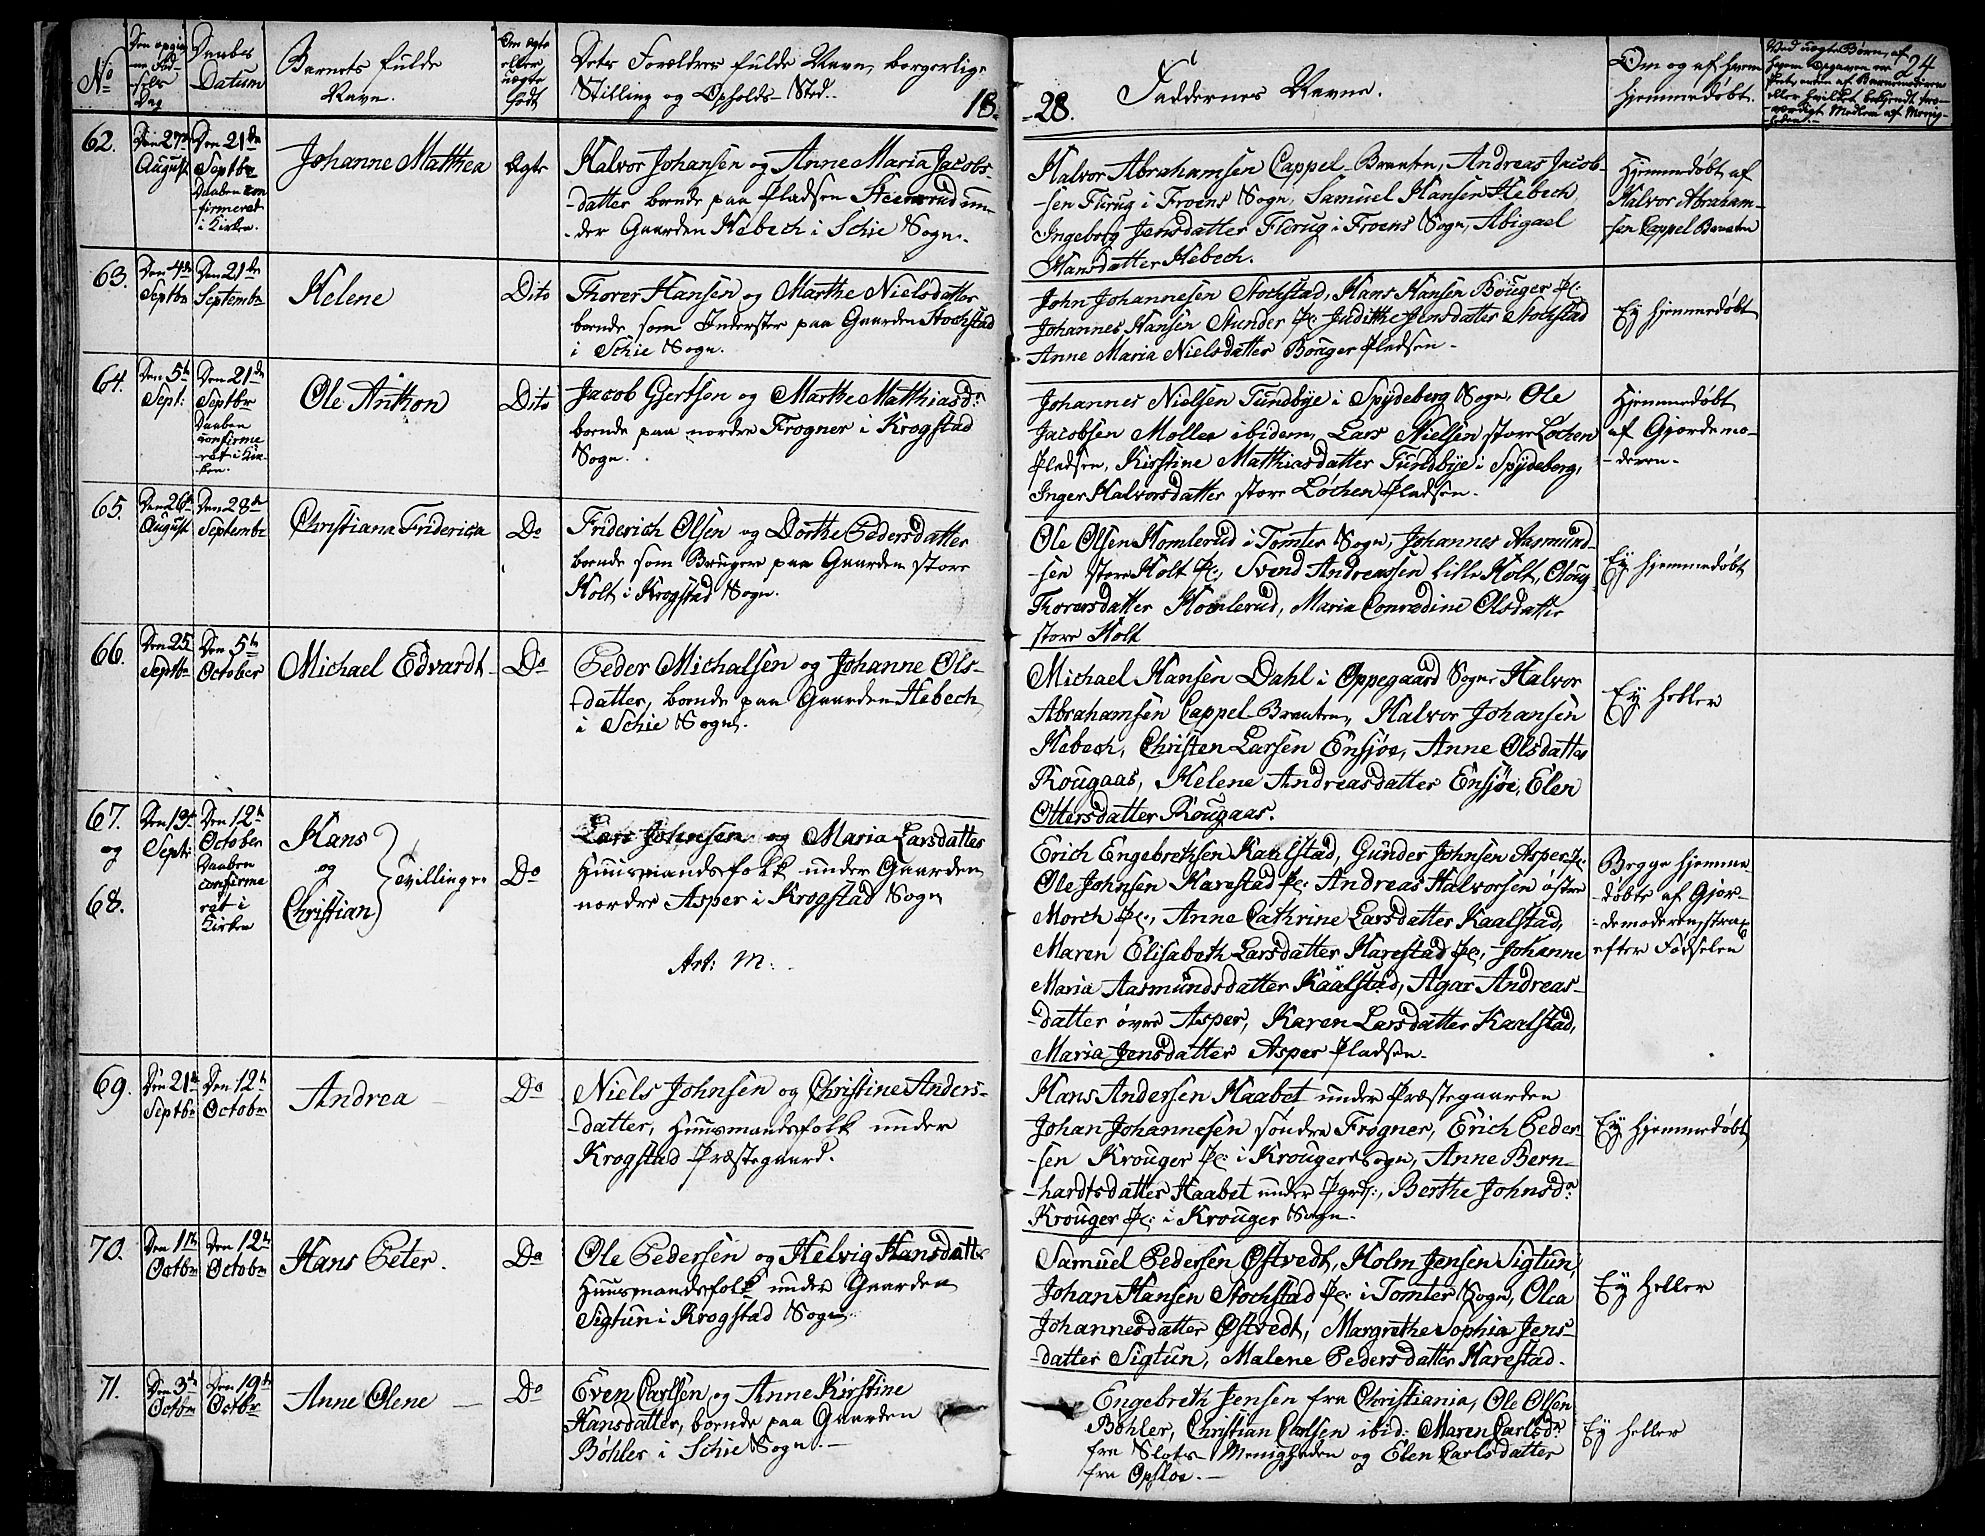 No
Den opgivne Fødsels Dag
Daabs Datum
Barnets fulde Navn.
Om ægte eller uægte født
Dets Forældres fulde Navn, borgerlige Stilling og Opholds-Sted.
18-
-28.
Faddernes Navne.
Om og af hvem hjemmedøbt.
24
62.
Den 27de August
Den 21de Septbr
Daaben con-
firmeret
i Kirken.
Johanne Matthea
Ægte
Halvor Johansen og Anne Maria Jacobs-
-datter boende paa Pladsen Steensrud un-
-der Gaarden Hebech i Schie Sogn.
Halvor Abrahamsen Cappel-Braaten, Andreas Jacob-
-sen Furug i Froens Sogn, Samuel Hansen Hebech,
Ingeborg Jensdatter Florug i Froens Sogn, Abigael
Hansdatter Hebech.
Hjemmedøbt af
Halvor Abraham-
-sen Cappel Braaten
63.
Den 4de Septbr
Den 21de Septembr
Helene
Dito
Thorer Hansen og Marthe Nielsdatter
boende som Inderster paa Gaarden Stochstad
i Schie Sogn.
John Johannesen Stochstad, Hans Hansen Bouger Pl:
Johannes Hansen Stunder Pl: Judithe Jensdatter Stochstad
Anne Maria Nielsdatter Bouger Pladsen -
Ey hjemmedøbt
64.
Den 5te Sept:
Den 21de Septbr
Daaben
confirme
-ret i Kir-
ken.
Ole Anthon
Dito
Jacob Gjertsen og Marthe Matthiasd:
boende paa nordre Frogner i Krogstad
Sogn.
Johannes Nielsen Tundbye i Spydeberg Sogn, Ole
Jacobsen Moller ibidem, Lars Nielsen store Løchen
Pladsen, Kirstine Matthiasdatter Tundbye i Spydeberg,
Inger Halvorsdatter store Løchen Pladsen.
Hjemmedøbt
af Gjordemo-
-deren-
65.
Den 26de August
Den 28de Septembr
Christiana Friderica
Do
Friderich Olsen og Dorthe Pedersdatter
boende som Brugere paa Gaarden store
Holt i Krogstad Sogn.
Ole Olsen Homlerud i Tomter Sogn, Johannes Aasmund-
-sen store Holt Pl:, Svend Andreassen lille Holt, Oloug
Thorersdatter Homlerud, Maria Conradine Olsdatter
store Holt
Ey hjemmedøbt
66.
Den 25 Septbr
Den 5te October
Michael Edvardt
Do
Peder Michalsen og Johanne Ols-
-datter, boende paa Gaarden Hebech
i Schie Sogn.
Michael Hansen Dahl i Oppegaard Sogn Halvor
Abrahamsen Cappel-Braaten, Halvor Johansen
Hebech, Christen Larsen Ensjøe, Anne Olsdatter
Rougaas, Helene Andreasdatter Ensjøe, Elen
Ottersdatter Rougaas.
Ey heller
67.
og
68.
Den 13de Sept:
Den 12te October
Daaben
confirme
ret i
Kirken
Hans
og
Christian
Tvillinger
Do
Lars Johnsen og Maria Larsdatter
Huusmandsfolk under Gaarden
nordre Asper i Krogstad Sogn
Art: M:
Erich Engebrethsen Kaalstad, Gunder Johnsen Asper Pl:
Ole Johnsen Harestad Pl: Andreas Halvorsen østre
Morch Pl:, Anne Cathrine Larsdatter Kaalstad,
Maren Elisabeth Larsdatter Harestad Pl:, Johanne
Maria Aasmundsdatter Kaalstad, Agar Andreas-
-datter øvre Asper, Karen Larsdatter Kaalstad,
Maria Jensdatter Asper Pladsen.
Begge hjemme
-døbte af Gjor-
-demoderen strax
efter Fødselen
69.
Den 21de Septbr
Den 12te Octobr
Andrea
Do
Niels Johnsen og Christine Anders-
-datter, Huusmandsfolk under
Krogstad Præstegaard.
Hans Andersen Haabet under Præstegaarden
Johan Johannesen søndre Frogner, Erich Peder-
-sen Krouger Pl: i Krouger Sogn, Anne Bern-
hardtsdatter Haabet under Pgrd:, Berthe Johnsdr
Krouger Pl: i Krouger Sogn.
Ey hjemmedøbt
70.
Den 1ste Octbr
Den 12te Octobr
Hans Peter.
Do
Ole Pedersen og Helvig Hansdatter
Huusmandsfolk under Gaarden
Sigtun i Krogstad Sogn.
Samuel Pedersen Østvedt, Holm Jensen Sigtun,
Johan Hansen Stochstad Pl: i Tomter Sogn, Olea
Johannesdatter Østvedt, Margrethe Sophia Jens-
-datter Sigtun, Malene Pedersdatter Harestad.
Ey heller
71.
Den 3de Octbr
Den 19de Octbr
Anne Olene
Do
Even Carlsen og Anne Kirstine
Hansdatter, boende paa Gaarden
Bøhler i Schie Sogn.
Engebreth Jensen fra Christiania, Ole Olsen
Bøhler, Christian Carlsen ibid: Maren Carlsdr
fra Slots-Menigheden og Elen Carlsdatter
fra Opsloe.
Ey heller